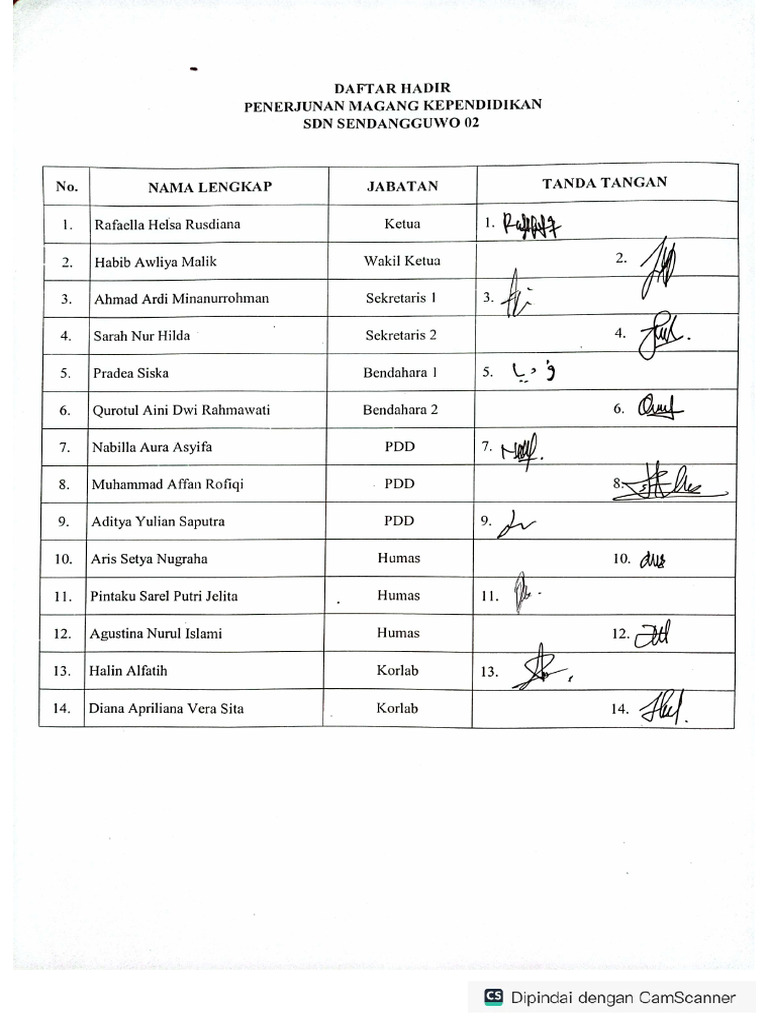 DAFTAR HADIR
PENERJUNAN MAGANG KEPENDIDIKAN
SDN SENDANGGUWO 02
No. NAMA LENGKAP JABATAN TANDA TANGAN
1. Rafaella Helsa Rusdiana Ketua 1.
2. Habib Awliya Malik Wakil Ketua 2.
3. Ahmad Ardi Minanurrohman Sekretaris 1 3.
4. Sarah Nur Hilda Sekretaris 2 4.
5. Pradea Siska Bendahara 1 5.
6. Qurotul Aini Dwi Rahmawati Bendahara 2 6.
7. Nabilla Aura Asyifa PDD 7.
8. Muhammad Affan Rofiqi PDD 8.
9. Aditya Yulian Saputra PDD 9.
10. Aris Setya Nugraha Humas 10.
11. Pintaku Sarel Putri Jelita Humas 11.
12. Agustina Nurul Islami Humas 12.
13. Halin Alfatih Korlab 13.
14. Diana Apriliana Vera Sita Korlab 14.
CS Dipindai dengan CamScanner